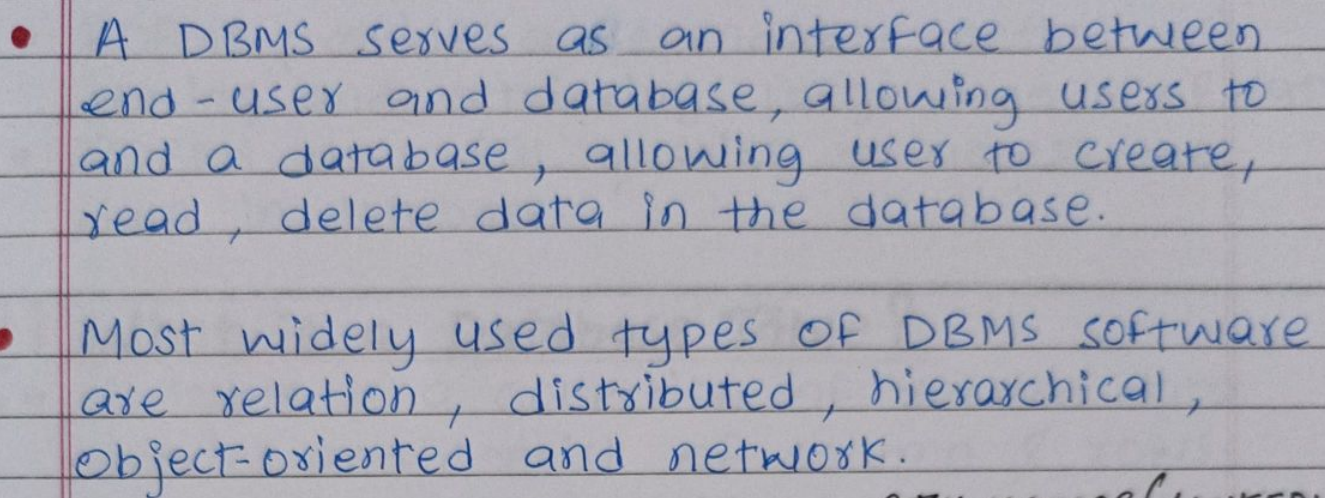 • A DBMS serves as an interface between
end-user and database, allowing users to
and a database, allowing user to create,
read, delete data in the database.
• Most widely used types of DBMS software
are relation, distributed, hierarchical,
object-oriented and network.